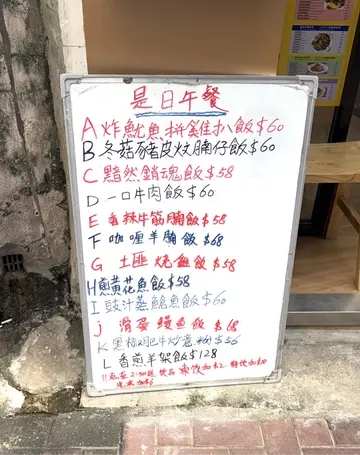 是日午餐
A 炸魷魚拼雞扒飯 $60
B 冬菇豬皮炆腩仔飯 $60
C 黯然銷魂飯 $58
D 一口牛肉飯 $60
E 香辣牛筋腩飯 $58
F 咖喱羊腩飯 $68
G 土匪燒雞飯 $58
H 煎黃花魚飯 $58
I 豉汁蒸鯧魚飯 $60
J 滑蛋鰻魚飯 $68
K 黑椒肥牛炒意粉 $56
L 香煎羊架飯 $128